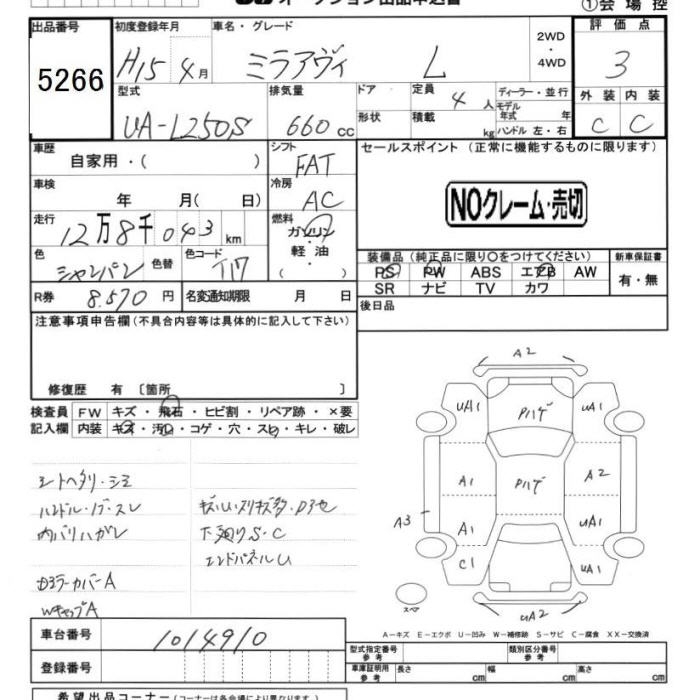 オークション出品申込書
①会場控
出品番号
5266
初度登録年月
H15 4月
車名・グレード
ミラアヴィ L
2WD・4WD
評価点
3
型式
UA-L250S
排気量
660cc
ドア
形状
定員 4人
積載 kg
ディーラー・並行
モデル年式 年
ハンドル 左・右
外装 内装
C C
車歴
自家用・( )
シフト
FAT
セールスポイント (正常に機能するものに限ります)
NOクレーム・売切
車検
年 月(日)
冷房
AC
走行
12万8千043km
燃料
ガソリン・軽油・( )
色
シャンパン
色替
色コード
T17
装備品(純正品に限り○をつけてください)
PS PW ABS エアB AW
SR ナビ TV カワ
新車保証書
有・無
R券
8.570円
名変通知期限 月 日
後日品
注意事項申告欄(不具合内容等は具体的に記入して下さい)
修復歴 有〔箇所 〕
検査員記入欄
FW キズ・飛石・ヒビ割・リペア跡・×要
内装 キズ・汚レ・コゲ・穴・スレ・キレ・破レ
シートヘタリ・シミ
ハンドル・ノブ・スレ
内バリハガレ
下廻りS・C
エンドパネルU
Dミラーカバー A
WキャップA
A2
UA1 Pハゲ UA1
A1 Pハゲ A2
A3 A1 UA1
C1 UA1
UA2
スペア
A-キズ E-エクボ U-凹み W-補修跡 S-サビ C-腐食 XX-交換済
車台番号
1014910
登録番号
型式指定番号 参考
類別区分番号 参考
車庫証明用 参考
長さ cm 幅 cm 高さ cm
希望出品コーナー(コーナーは各会場により異なります)